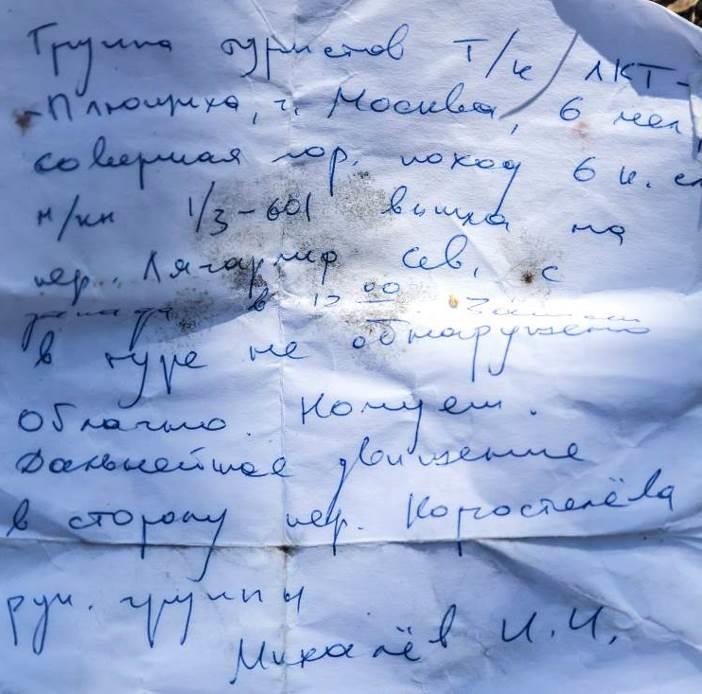 Группа туристов Т/к ЛКТ-
-Плющиха, г. Москва, 6 чел,
совершая гор. поход 6 к. сл
м/кн 1/3-601 вышла на
пер. Лягарлир сев, с
запада в 00
в туре не обнаружено
Облачно. Ночуем.
Дальнейшее движение
в сторону пер. Коростелёва
рук. группы
Михалёв И.И.